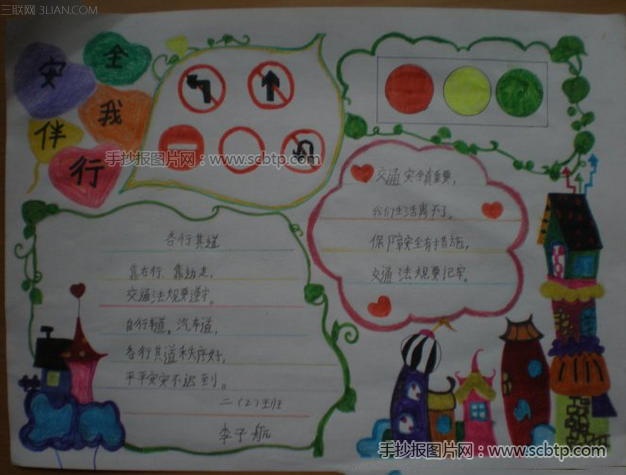 三联网 3LIAN.COM
安全
我
伴
行
手抄报图片网：www.scbtp.com
交通安全真重要，
我们生活离不了。
保障安全有措施，
交通法规要记牢。
各行其道
靠右行，靠边走，
交通法规要遵守。
自行车道，汽车道，
各行其道秩序好，
平平安安不迟到。
二（2）班
李子航
手抄报图片网：www.scbtp.com